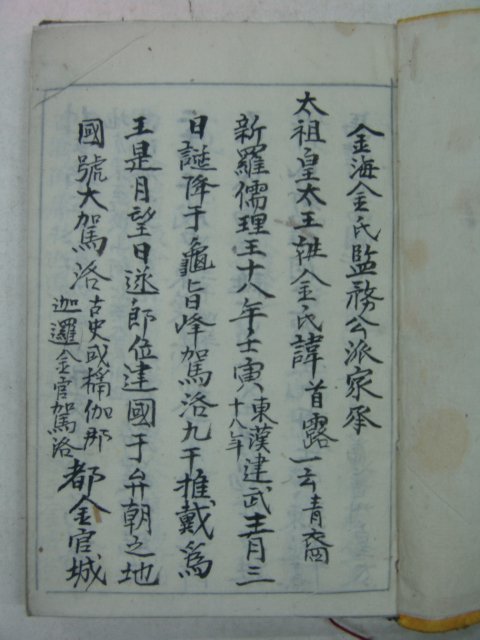 金海金氏監務公派家承
太祖皇太王姓金氏諱首露一云青裔
新羅儒理王十八年壬寅東漢建武十八年三月三
日誕降于龜旨峰駕洛九干推戴爲
王是月望日遂郎位建國于弁朝之地
國號大駕洛古史或稱伽耶迦邏金官駕洛都金官城